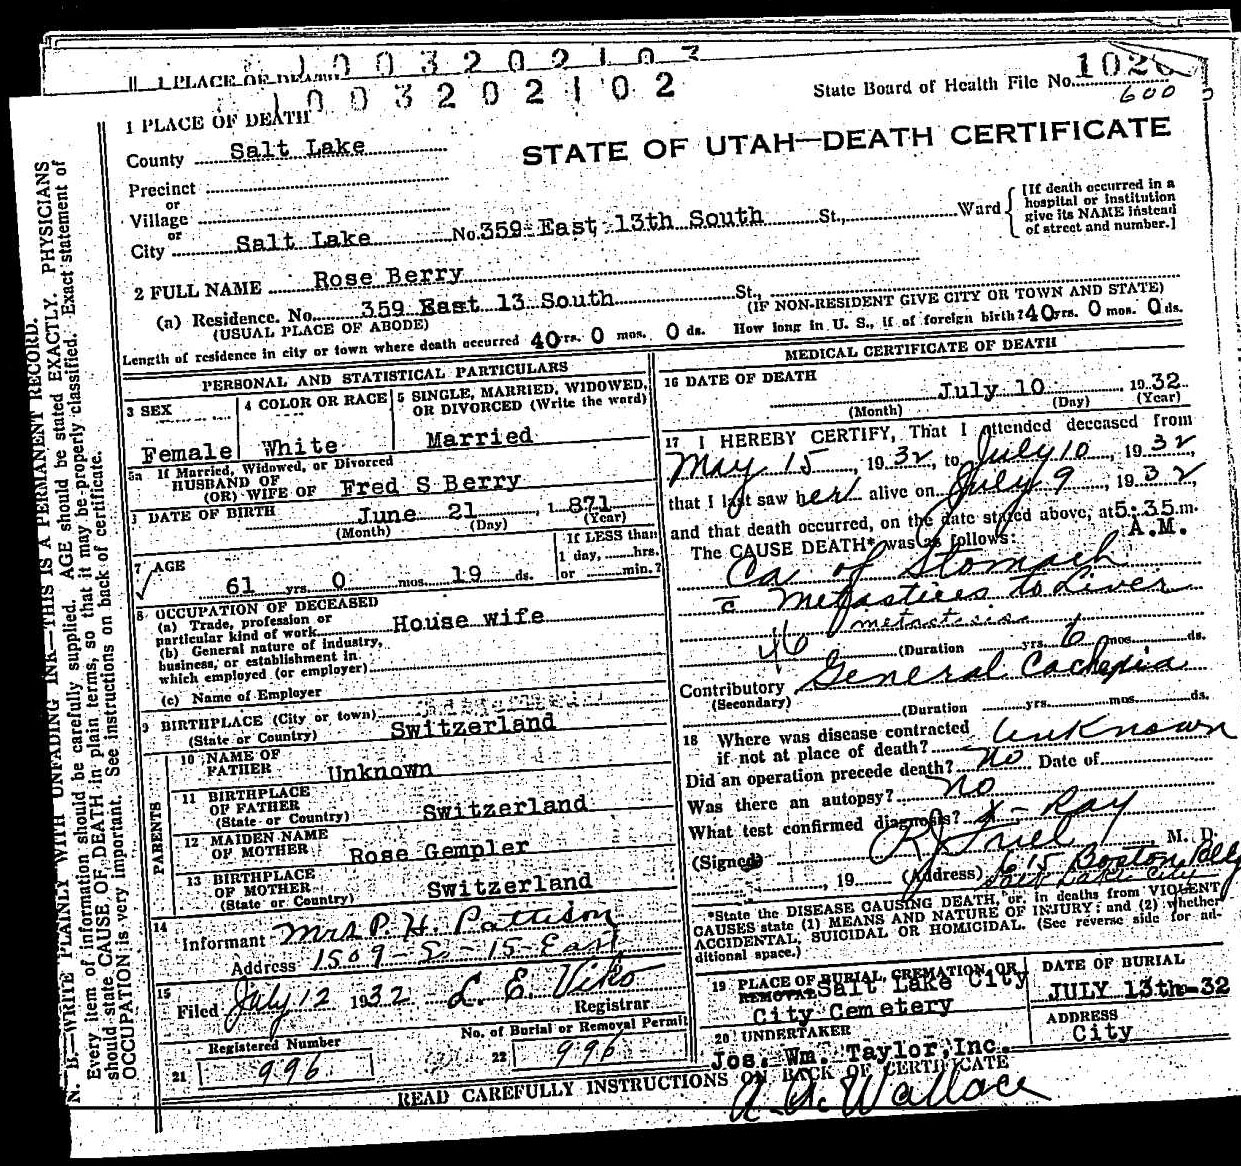 1 PLACE OF DEATH
1003202103
1003202102
State Board of Health File No.
600
1 PLACE OF DEATH
STATE OF UTAH—DEATH CERTIFICATE
County Salt Lake
Precinct
or
Village
or
City Salt Lake No. 359 East 13th South St., Ward
[If death occurred in a
hospital or institution
give its NAME instead
of street and number.]
2 FULL NAME Rose Berry
(a) Residence. No. 359 East 13 South St.,
(USUAL PLACE OF ABODE) (IF NON-RESIDENT GIVE CITY OR TOWN AND STATE)
Length of residence in city or town where death occurred 40 yrs. 0 mos. 0 ds. How long in U. S., if of foreign birth? 40 yrs. 0 mos. 0 ds.
PERSONAL AND STATISTICAL PARTICULARS
3 SEX
Female
4 COLOR OR RACE
White
5 SINGLE, MARRIED, WIDOWED,
OR DIVORCED (Write the word)
Married
5a If Married, Widowed, or Divorced
HUSBAND OF
(OR) WIFE OF Fred S Berry
DATE OF BIRTH June 21, 1871
(Month) (Day) (Year)
7 AGE
61 yrs. 0 mos. 19 ds.
If LESS than
1 day, hrs.
or min.?
8 OCCUPATION OF DECEASED
(a) Trade, profession or
particular kind of work House wife
(b) General nature of industry,
business, or establishment in
which employed (or employer)
(c) Name of Employer
9 BIRTHPLACE (City or town)
(State or Country) Switzerland
PARENTS
10 NAME OF
FATHER Unknown
11 BIRTHPLACE
OF FATHER
(State or Country) Switzerland
12 MAIDEN NAME
OF MOTHER Rose Gempler
13 BIRTHPLACE
OF MOTHER
(State or Country) Switzerland
14
Informant Mrs P. H. Pattison
Address 1509-S-15-East
15
Filed July 12 1932 L. E. Viko
Registrar
Registered Number
21 996
No. of Burial or Removal Permit
22 996
MEDICAL CERTIFICATE OF DEATH
16 DATE OF DEATH
July 10 1932
(Month) (Day) (Year)
17 I HEREBY CERTIFY, That I attended deceased from
May 15, 1932, to July 10, 1932,
that I last saw her alive on July 9, 1932,
and that death occurred, on the date stated above, at 5:35 m.
A.M.
The CAUSE DEATH* was as follows:
Ca of Stomach
c̄ Metastices to Liver
metastasis
46 (Duration yrs. 6 mos. ds.
Contributory General Cachexia
(Secondary)
(Duration yrs. mos. ds.
18 Where was disease contracted
if not at place of death? Unknown
Did an operation precede death? No Date of
Was there an autopsy? No
What test confirmed diagnosis? X-Ray
(Signed) M. D.
, 19 (Address) 615 Boston Bldg
Salt Lake City
*State the DISEASE CAUSING DEATH, or, in deaths from VIOLENT
CAUSES state (1) MEANS AND NATURE OF INJURY; and (2) whether
ACCIDENTAL, SUICIDAL OR HOMICIDAL. (See reverse side for ad-
ditional space.)
19 PLACE OF BURIAL, CREMATION, OR
REMOVAL Salt Lake City
City Cemetery
DATE OF BURIAL
JULY 13th-32
20 UNDERTAKER
Jos. Wm. Taylor, Inc.
ADDRESS
City
READ CAREFULLY INSTRUCTIONS ON BACK OF CERTIFICATE
A. A. Wallace
N. B.—WRITE PLAINLY WITH UNFADING INK—THIS IS A PERMANENT RECORD.
Every item of information should be carefully supplied. AGE should be stated EXACTLY. PHYSICIANS
should state CAUSE OF DEATH in plain terms, so that it may be properly classified. Exact statement of
OCCUPATION is very important. See instructions on back of certificate.